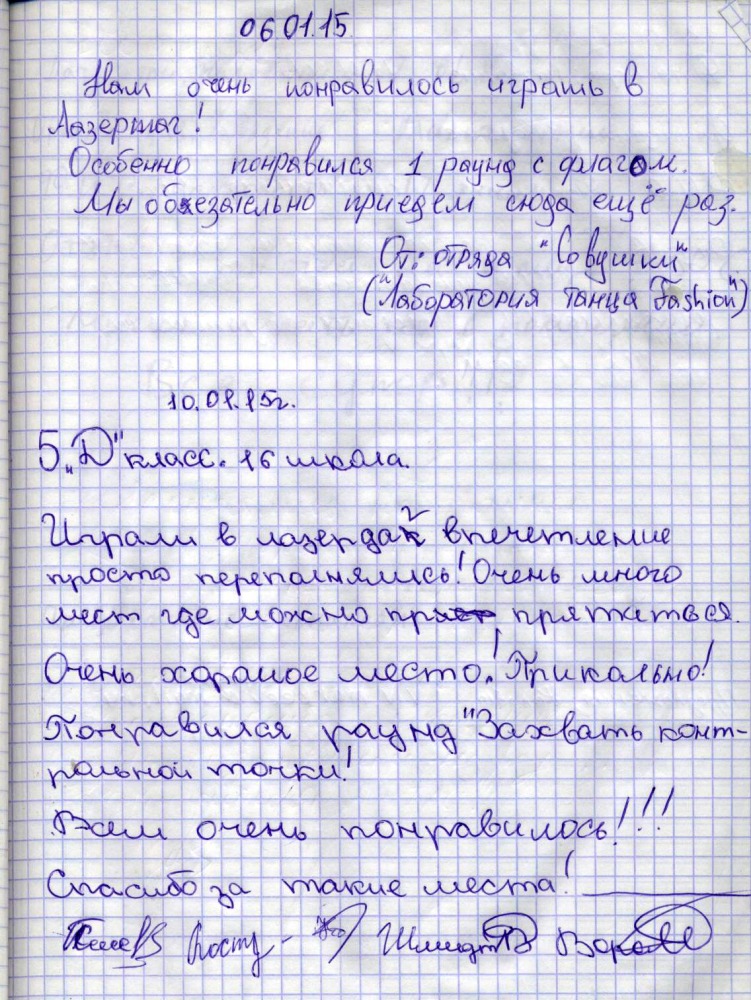 06.01.15
Нам очень понравилось играть в
Лазертаг!
Особенно понравился 1 раунд с флагом.
Мы обезательно приедем сюда ещё раз.
От: отряда "Совушки"
("Лаборатория танца Fashion")
10.01.15г.
5 „Д" класс. 16 школа.
Играли в лазердаг впечетление
просто переполнялись! Очень много
мест где можно прятиться.
Очень хорошое место! Прикольно!
Понравился раунд "Захвать конт-
рольной точки!
Всем очень понравилось!!!!
Спасибо за такие места!
Шмидт